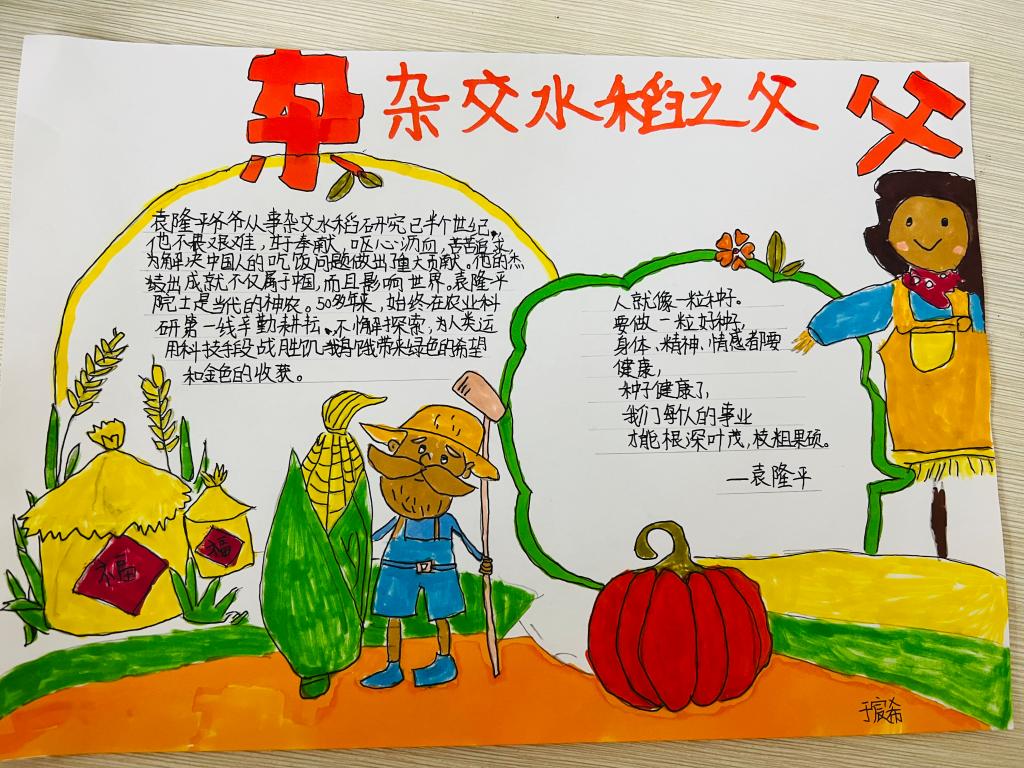 杂 杂交水稻之父 父
袁隆平爷爷从事杂交水稻研究已半个世纪,
他不畏艰难,甘于奉献,呕心沥血,苦苦追求,
为解决中国人的吃饭问题做出了重大贡献。他的杰
出成就不仅属于中国,而且影响世界。袁隆平
院士是当代的神农。50多年来,始终在农业科
研第一线辛勤耕耘、不懈探索,为人类运
用科技手段战胜饥饿带来绿色的希望
和金色的收获。
人就像一粒种子。
要做一粒好种子
身体、精神、情感都要
健康,
种子健康了,
我们每个人的事业
才能根深叶茂,枝粗果硕。
—袁隆平
福
福
于宸希